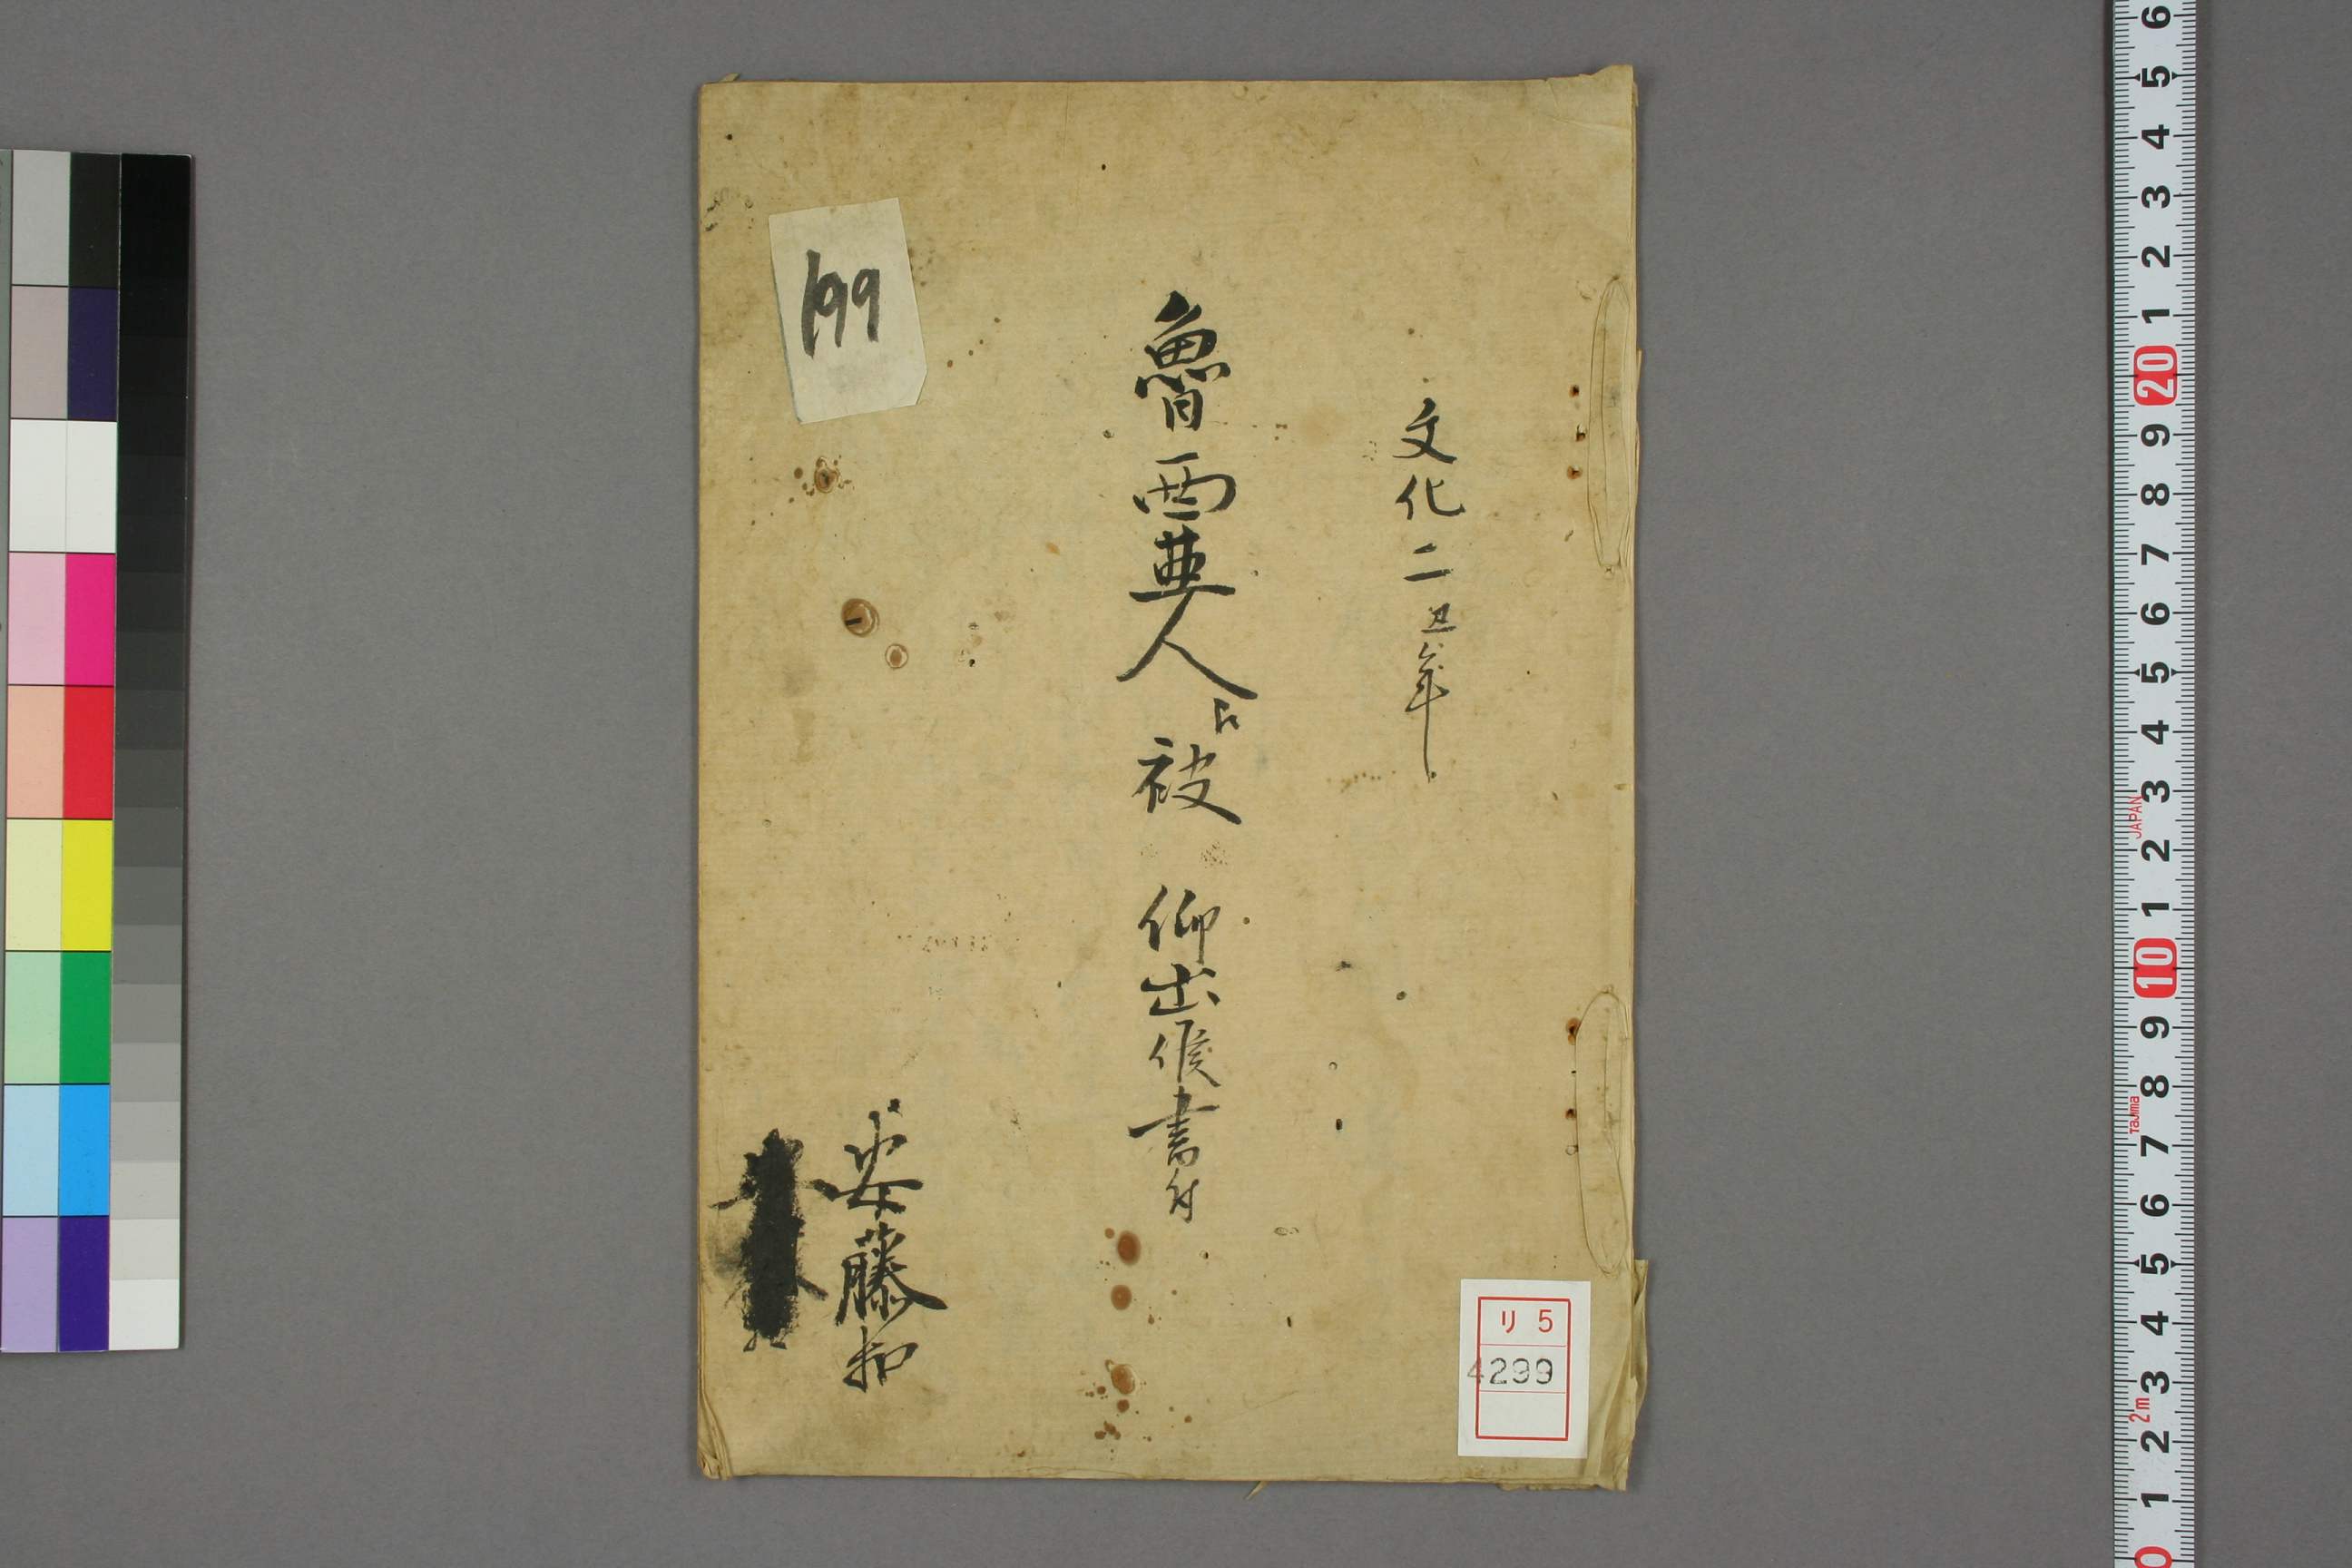 文化二丑年
魯西亜人江被 仰出候書付
安藤扣
199
リ 5
4299
6 5 4 3 2 1 20 9 8 7 6 5 4 3 2 1 10 9 8 7 6 5 4 3 2 1 0
JAPAN
Tajima
2m